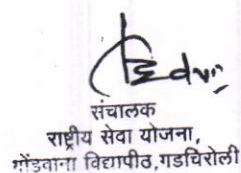 संचालक
राष्ट्रीय सेवा योजना,
गोंडवाना विद्यापीठ,गडचिरोली